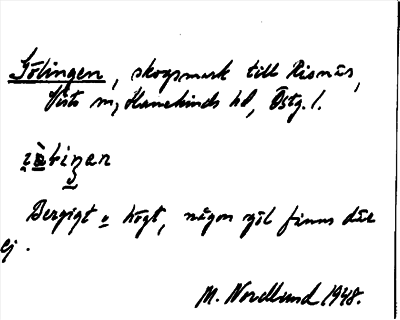 Gölingen, skogsmark till Risnäs,
Västra Eneby sn, Hanekinds hd, Östg. l.
Bergigt o högt, någon göl finns där
ej.
M. Nordlund 1948.